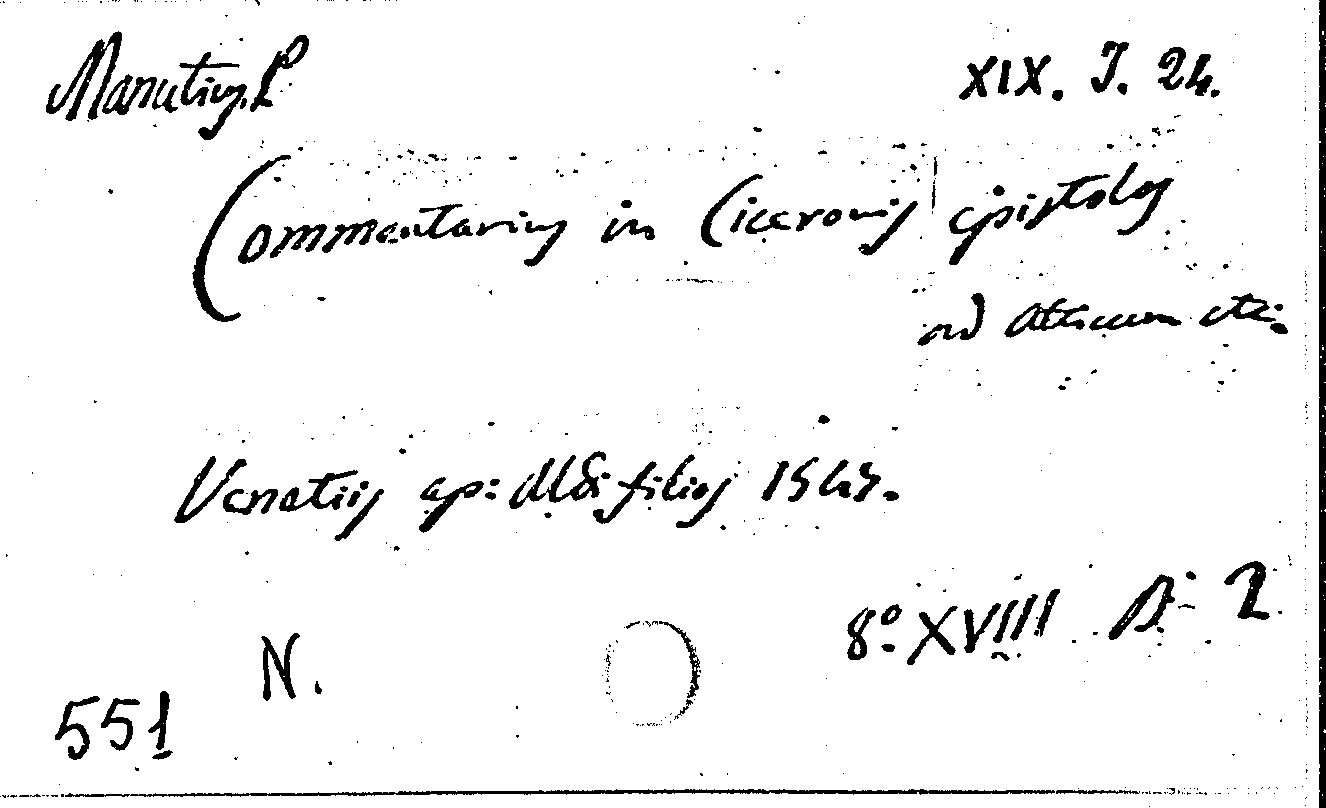 Manutius. P XIX. J. 24.
Commentarius in Ciceronis epistolas
ad Atticum etc.
Venetiis ap: Aldi filios 1547.
8º. XVIII 2
N.
551